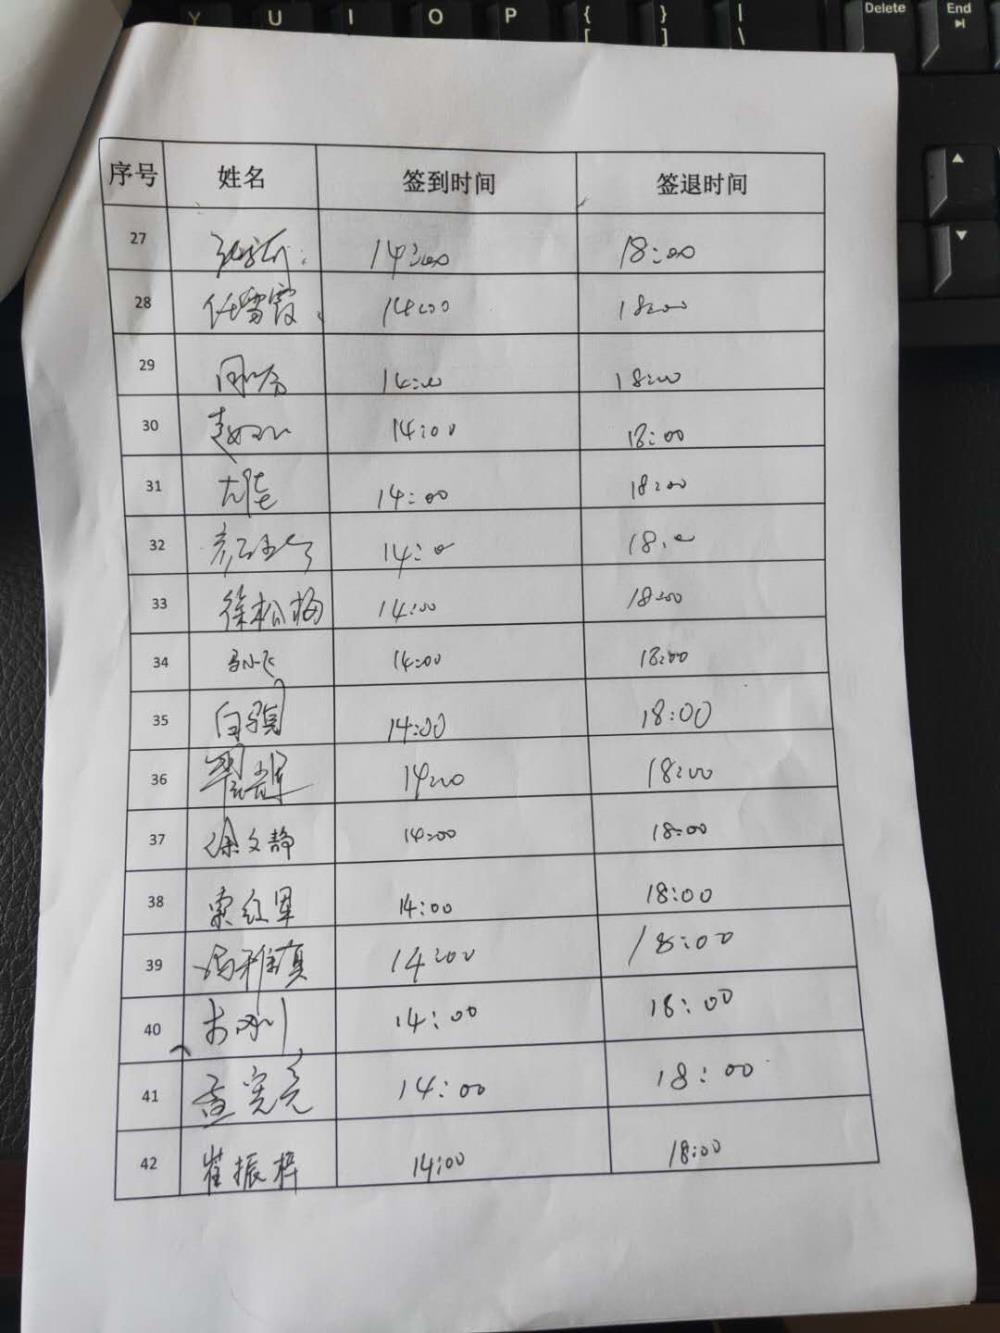 Y U I O P { [ } ] | \ Delete End
序号 姓名 签到时间 签退时间
27 14:00 18:00
28 任雷霞 14:00 18:00
29 14:00 18:00
30 14:00 18:00
31 14:00 18:00
32 14:00 18:00
33 徐松梅 14:00 18:00
34 马小飞 14:00 18:00
35 14:00 18:00
36 14:00 18:00
37 徐文静 14:00 18:00
38 索红军 14:00 18:00
39 冯雅真 14:00 18:00
40 14:00 18:00
41 孟宪亮 14:00 18:00
42 崔振梓 14:00 18:00